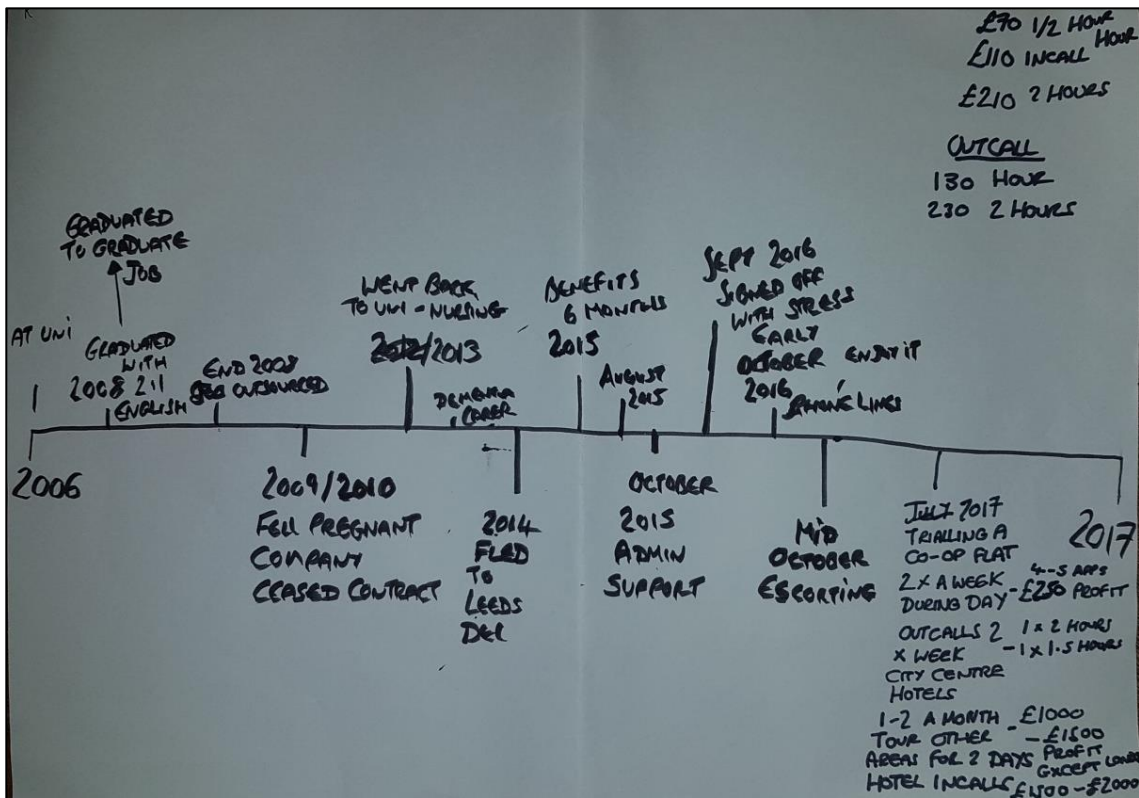 £70 1/2 HOUR
£110 INCALL HOUR
£210 2 HOURS
OUTCALL
130 HOUR
230 2 HOURS
AT UNI
GRADUATED
TO GRADUATE
JOB
GRADUATED
WITH
2008 2:1
ENGLISH
END 2008
JOB OUTSOURCED
WENT BACK
TO UNI - NURSING
2012/2013
DEMENTIA
CARER
BENEFITS
6 MONTHS
2015
AUGUST
2015
SEPT 2016
SIGNED OFF
WITH STRESS
EARLY
OCTOBER
2016
PHONE LINES
2006
2009/2010
FELL PREGNANT
COMPANY
CEASED CONTRACT
2014
FLED
TO
LEEDS
DEC
OCTOBER
2015
ADMIN
SUPPORT
MID
OCTOBER
ESCORTING
JULY 2017
TRIALLING A
CO-OP FLAT
2 X A WEEK 4-5 APPS
DURING DAY - £250 PROFIT
OUTCALLS 2 1 X 2 HOURS
X WEEK - 1 X 1.5 HOURS
CITY CENTRE
HOTELS
1-2 A MONTH - £1000
TOUR OTHER - £1500
AREAS FOR 2 DAYS PROFIT
EXCEPT
HOTEL INCALLS £1500-£2000
2017